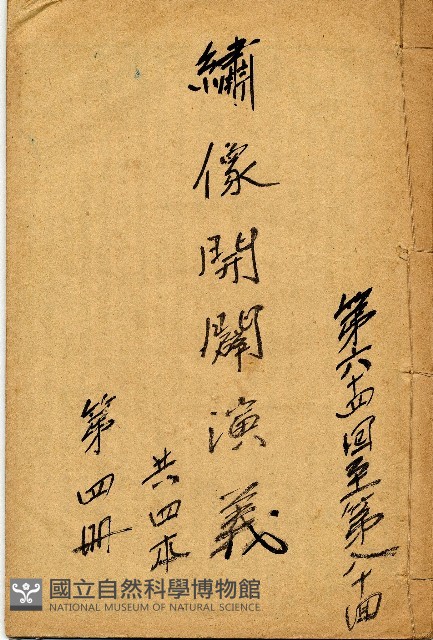 第六十四回至第八十回
繡像開闢演義
共四本
第四冊
國立自然科學博物館
NATIONAL MUSEUM OF NATURAL SCIENCE